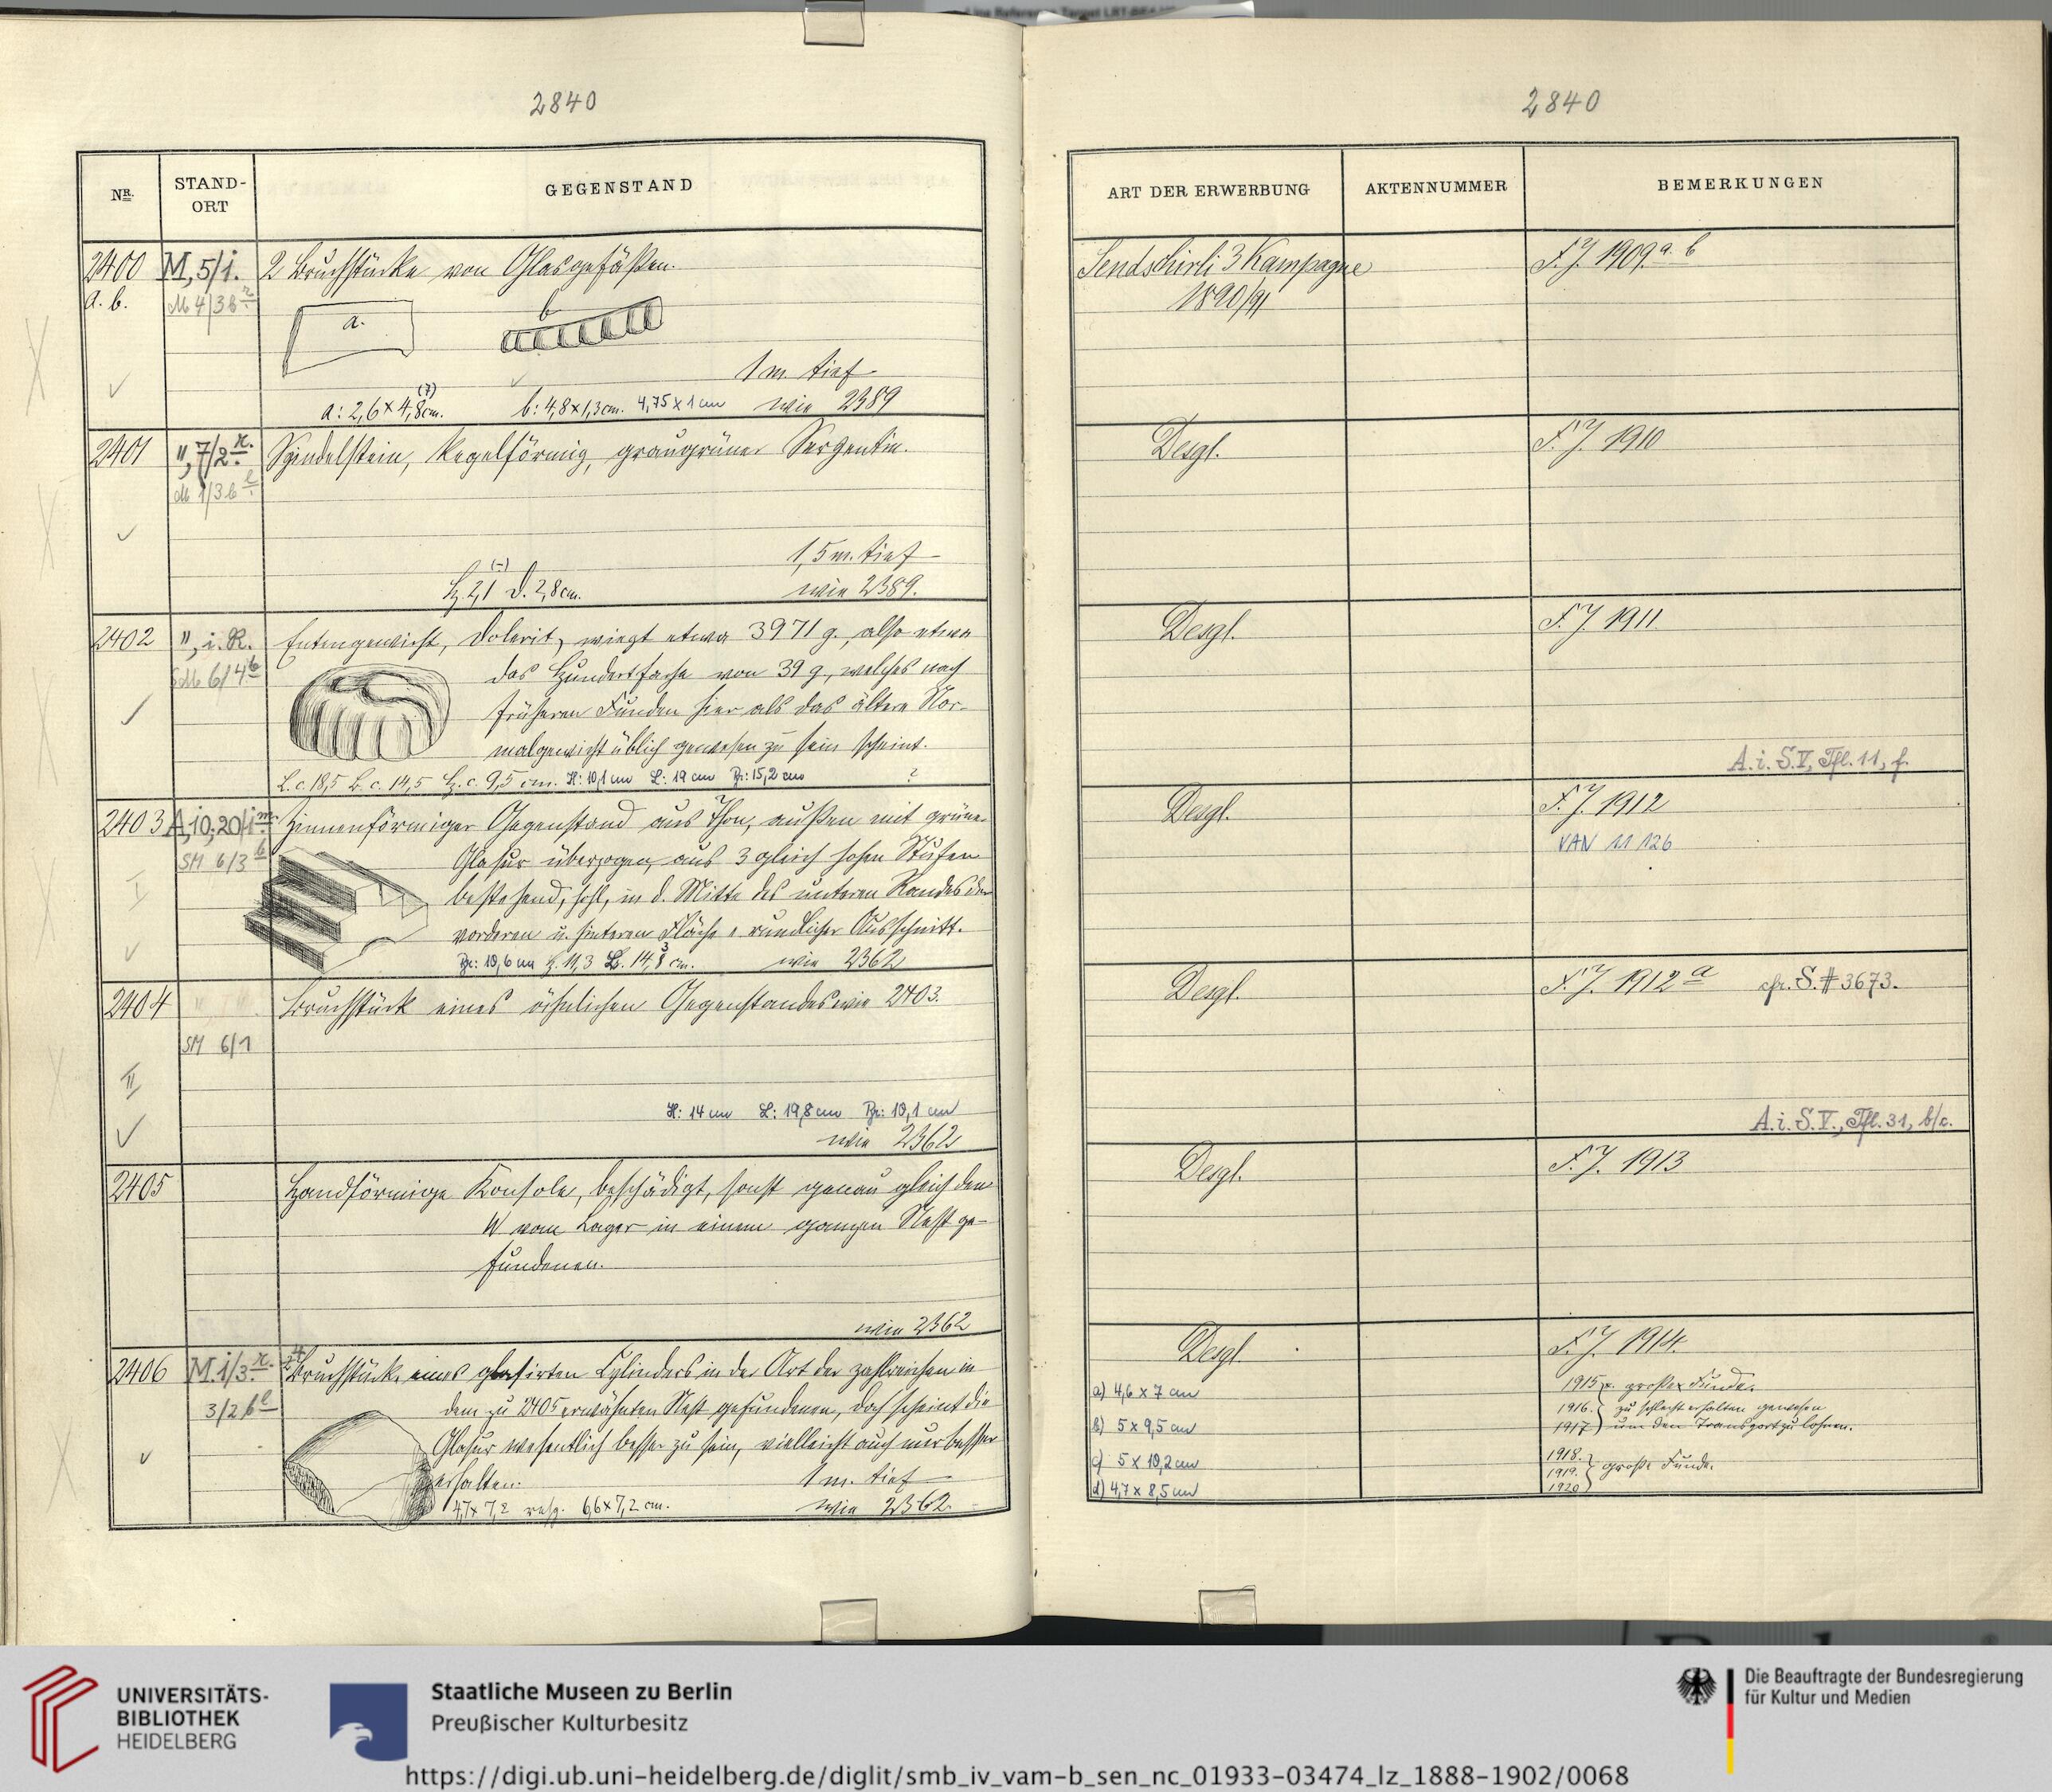 2840
NR.
STAND-
ORT
GEGENSTAND
2400
a. b.
M, 5/i.
M 4/3b r.
2 Bruchstücke von Glasgefäßen.
a.
b
1 m. tief
(7)
a: 2,6 x 4,8 cm. b: 4,8 x 1,3 cm. 4,75 x 1 cm wie 2389
2401
", 7/2 r.
M 1/3b l.
Spindelstein, kegelförmig, graugrüner Serpentin.
1,5 m. tief
(-)
H. 2,1 d. 2,8 cm. wie 2389.
2402
", i. R.
SM 6/4 b
Entengewicht, Dolerit, wiegt etwa 3971 g., also etwa
das Hundertfache von 39 g, welches nach
früheren Funden hier als das ältere Nor-
malgewicht üblich gewesen zu sein scheint.
L. c. 18,5 B. c. 14,5 H. c. 9,5 cm. H: 10,1 cm L: 19 cm Br: 15,2 cm ?
2403
A, 10, 20/i m.
SM 6/3 b
I
Zinnenförmiger Gegenstand aus Thon, außen mit grüner
Glasur überzogen, aus 3 gleich hohen Stufen
bestehend, hohl, in d. Mitte des unteren Randes der
vorderen u. hinteren Fläche e rundlicher Ausschnitt.
Br: 10,6 cm H. 11,3 L. 14,8 cm. wie 2362
2404
" " "
SM 6/1
II
Bruchstück eines ähnlichen Gegenstandes wie 2403.
H: 14 cm L: 19,8 cm Br: 10,1 cm
wie 2362
2405
Handförmige Konsole, beschädigt, sonst genau gleich den
W vom Lager in einem ganzen Nest ge-
fundenen.
wie 2362
2406
M. 1/3 r.
3/2 b l
Bruchstück eines glasirten Cylinders in der Art der zahlreichen in
dem zu 2405 erwähnten Nest gefundenen, doch scheint die
Glasur wesentlich besser zu sein, vielleicht auch nur besser
erhalten. 1 m. tief
4,7 x 7,2 resp. 6,6 x 7,2 cm. wie 2362.
2840
ART DER ERWERBUNG
AKTENNUMMER
BEMERKUNGEN
Sendschirli 3 Kampagne
1890/91
F. J. 1909 a. b
Desgl.
F. J. 1910
Desgl.
F. J. 1911
A. i. S. V, Tfl. 11, f.
Desgl.
F. J. 1912
VAN 11 126
Desgl.
F. J. 1912 a cfr. S. # 3673.
A. i. S. V., Tfl. 31, b/c.
Desgl.
F. J. 1913
Desgl.
F. J. 1914.
a) 4,6 x 7 cm
b) 5 x 9,5 cm
c) 5 x 10,2 cm
d) 4,7 x 8,5 cm
1915 großer Funde.
1916. zu schlecht erhalten gewesen
1917 um den Transport zu lohnen.
1918.
1919. große Funde.
1920
UNIVERSITÄTS-
BIBLIOTHEK
HEIDELBERG
Staatliche Museen zu Berlin
Preußischer Kulturbesitz
Die Beauftragte der Bundesregierung
für Kultur und Medien
https://digi.ub.uni-heidelberg.de/diglit/smb_iv_vam-b_sen_nc_01933-03474_lz_1888-1902/0068